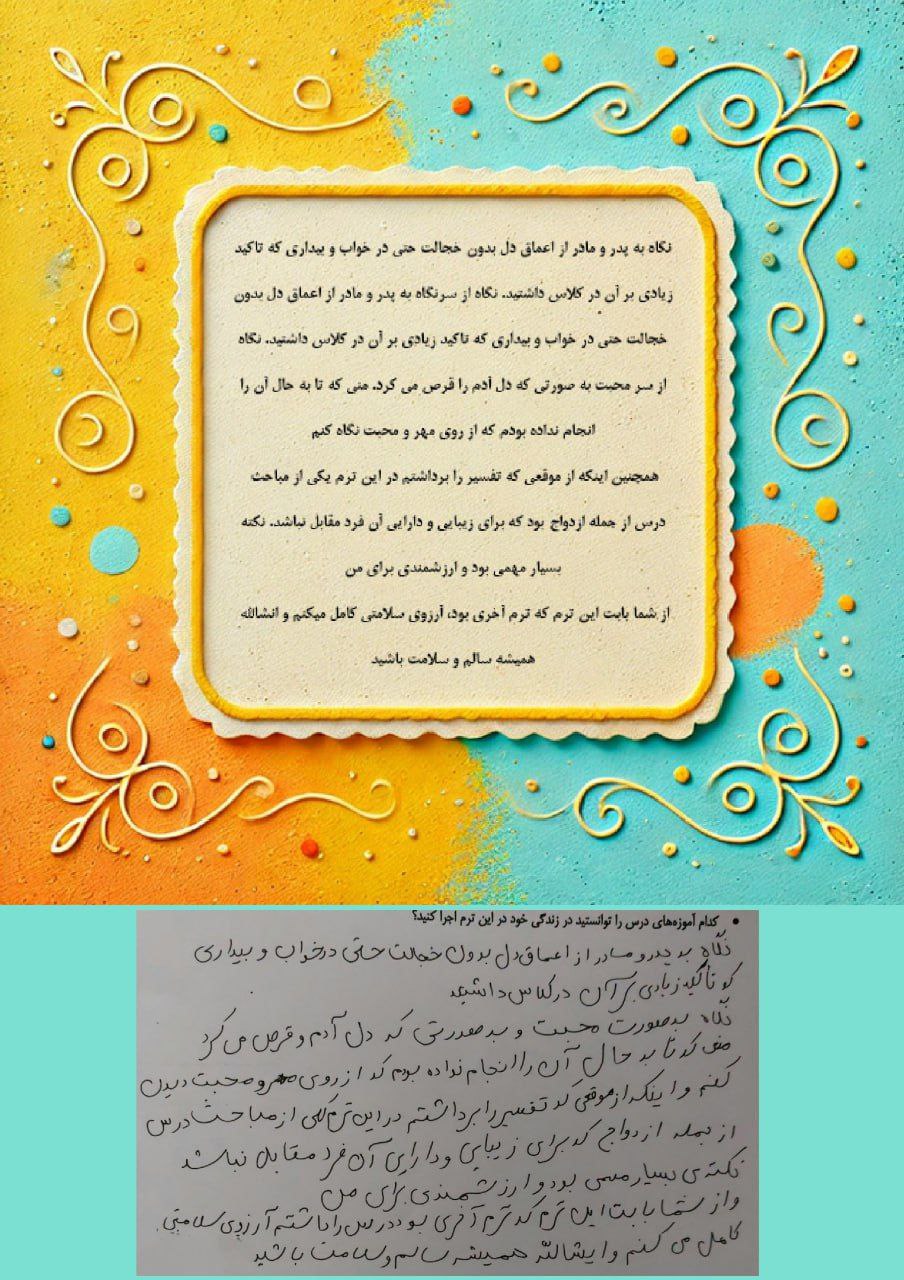 نگاه به پدر و مادر از اعماق دل بدون خجالت حتی در خواب و بیداری که تاکید
زیادی بر آن در کلاس داشتید. نگاه از سرنگاه به پدر و مادر از اعماق دل بدون
خجالت حتی در خواب و بیداری که تاکید زیادی بر آن در کلاس داشتید. نگاه
از سر محبت به صورتی که دل آدم را قرص می کرد. منی که تا به حال آن را
انجام نداده بودم که از روی مهر و محبت نگاه کنم
همچنین اینکه از موقعی که تفسیر را برداشتم در این ترم یکی از مباحث
درس از جمله ازدواج بود که برای زیبایی و دارایی آن فرد مقابل نباشد. نکته
بسیار مهمی بود و ارزشمندی برای من
از شما بابت این ترم که ترم آخری بود، آرزوی سلامتی کامل میکنم و انشالله
همیشه سالم و سلامت باشید
• کدام آموزه‌های درس را توانستید در زندگی خود در این ترم اجرا کنید؟
نگاه به پدر و مادر از اعماق دل بدون خجالت حتی در خواب و بیداری
که تأکید زیادی بر آن در کلاس داشتید
نگاه بصورت محبت و بصورتی که دل آدم و قرص می کرد
منی که تا به حال آن را انجام نداده بودم که از روی مهر و محبت دیدن
کنم و اینکه از موقعی که تفسیر را برداشتم در این ترم یکی از مباحث درس
از جمله ازدواج که برای زیبایی و دارایی آن فرد مقابل نباشد
نکته‌ی بسیار مهمی بود و ارزشمندی برای من
و از شما بابت این ترم که ترم آخری بود درس را داشتم آرزوی سلامتی
کامل می کنم و ایشالله همیشه سالم و سلامت باشید